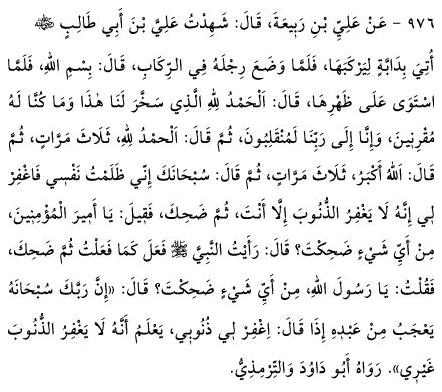 ٩٧٦ - عَنْ عَلِيِّ بْنِ رَبِيعَةَ، قَالَ: شَهِدْتُ عَلِيَّ بْنَ أَبِي طَالِبٍ ﵁
أُتِيَ بِدَابَّةٍ لِيَرْكَبَهَا، فَلَمَّا وَضَعَ رِجْلَهُ فِي الرِّكَابِ، قَالَ: بِسْمِ اللهِ، فَلَمَّا
اسْتَوَى عَلَى ظَهْرِهَا، قَالَ: اَلْحَمْدُ لِلهِ الَّذِي سَخَّرَ لَنَا هٰذَا وَمَا كُنَّا لَهُ
مُقْرِنِينَ، وَإِنَّا إِلَى رَبِّنَا لَمُنْقَلِبُونَ، ثُمَّ قَالَ: اَلْحمْدُ لِلهِ، ثَلَاثَ مَرَّاتٍ، ثُمَّ
قَالَ: اَللهُ أَكْبَرُ، ثَلَاثَ مَرَّاتٍ، ثُمَّ قَالَ: سُبْحَانَكَ إِنِّي ظَلَمْتُ نَفْسِي فَاغْفِرْ
لِي إِنَّهُ لَا يَغْفِرُ الذُّنُوبَ إِلَّا أَنْتَ، ثُمَّ ضَحِكَ، فَقِيلَ: يَا أَمِيرَ الْمُؤْمِنِينَ،
مِنْ أَيِّ شَيْءٍ ضَحِكْتَ؟ قَالَ: رَأَيْتُ النَّبِيَّ ﷺ فَعَلَ كَمَا فَعَلْتُ ثُمَّ ضَحِكَ،
فَقُلْتُ: يَا رَسُولَ اللهِ، مِنْ أَيِّ شَيْءٍ ضَحِكْتَ؟ قَالَ: «إِنَّ رَبَّكَ سُبْحَانَهُ
يَعْجَبُ مِنْ عَبْدِهِ إِذَا قَالَ: اِغْفِرْ لِي ذُنُوبِي، يَعْلَمُ أَنَّهُ لَا يَغْفِرُ الذُّنُوبَ
غَيْرِي». رَوَاهُ أَبُو دَاوُدَ وَالتِّرْمِذِيُّ.